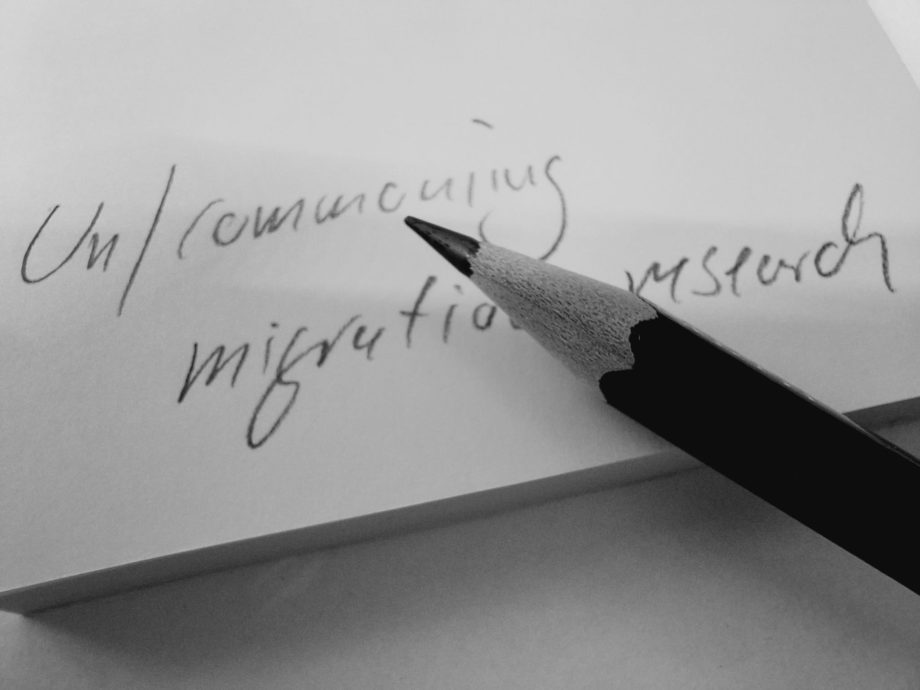 Un/commoning
migration research